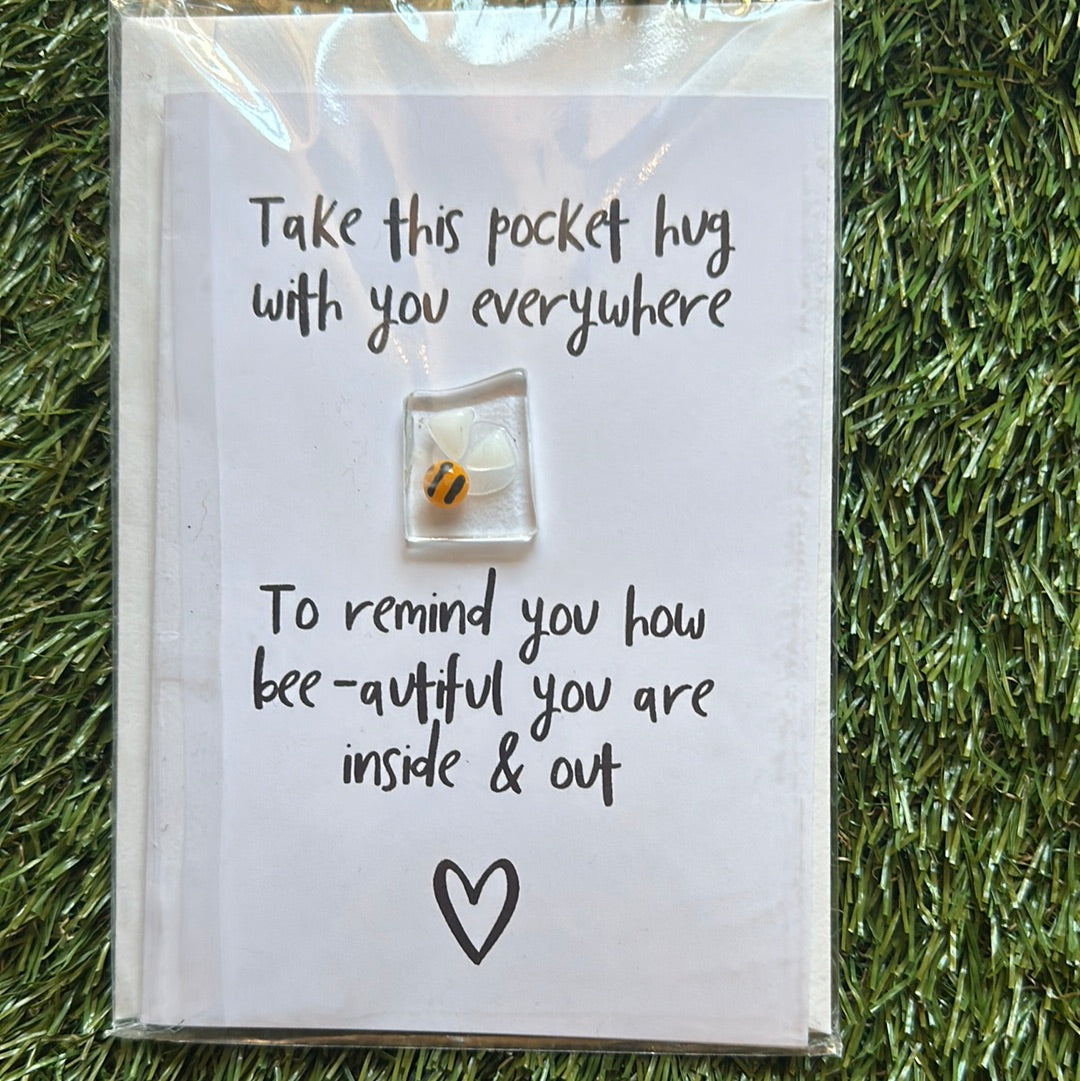 Take this pocket hug
with you everywhere
To remind you how
bee-autiful you are
inside & out